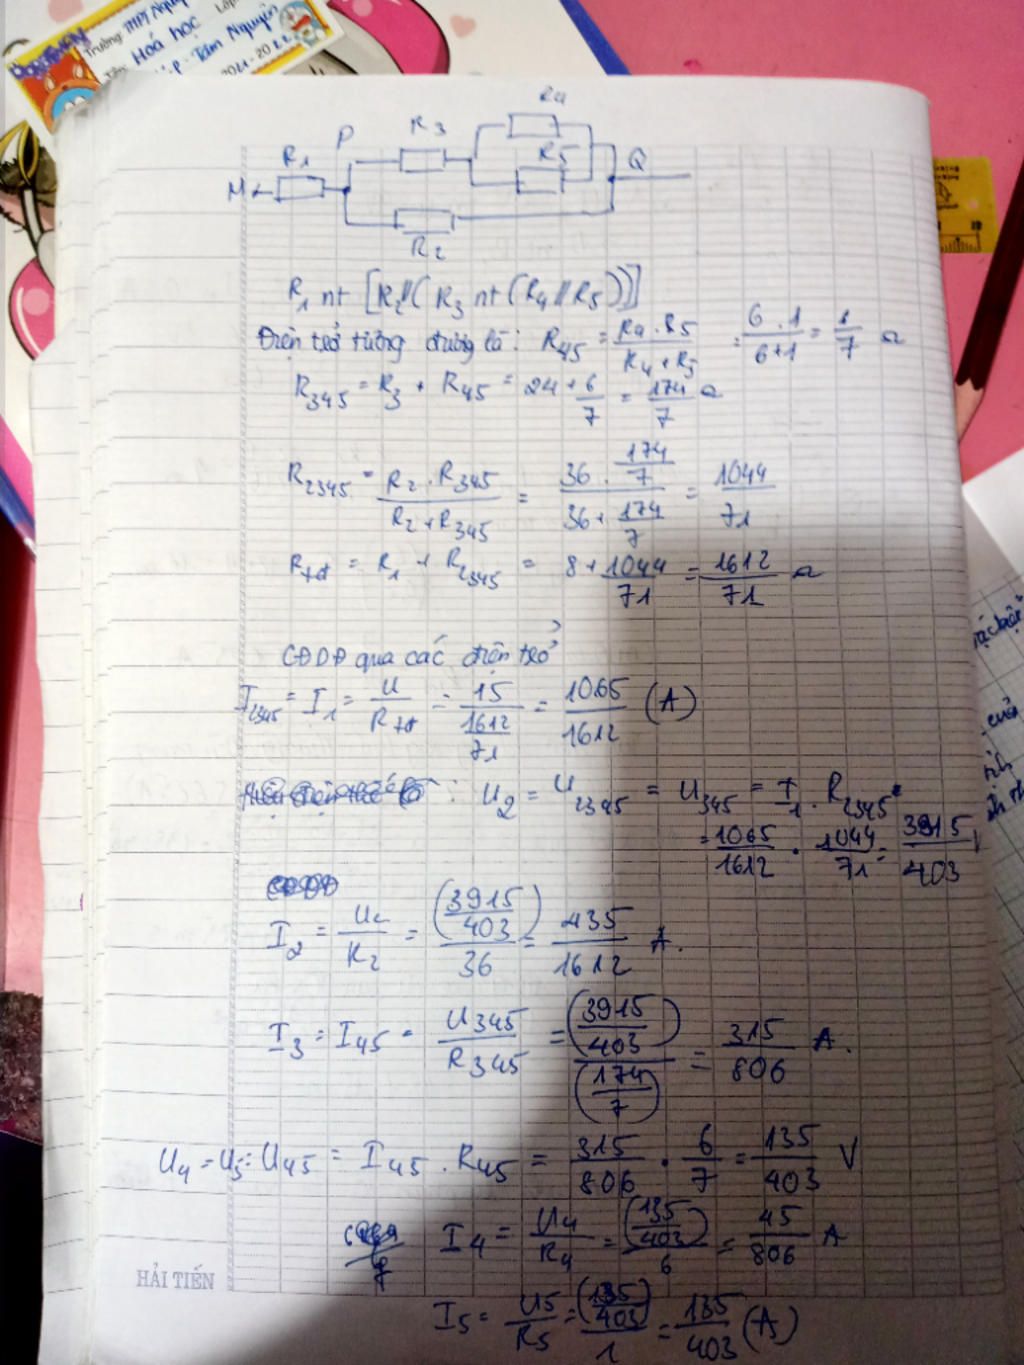 Trường: THPT Nguy
Hoá học
Tâm Nguyên
2021-2022
R4
P
R3
R1
R5
Q
M
R2
R₁ nt [R₂//(R₃ nt (R₄//R₅))]
Điện trở tương đương là: R₄₅ = R4.R5/R4+R5 = 6.1/6+1 = 6/7 Ω
R₃₄₅ = R₃ + R₄₅ = 24 + 6/7 = 174/7 Ω
R₂₃₄₅ = R₂.R₃₄₅/R₂+R₃₄₅ = 36.174/7/36+174/7 = 1044/71
Rtđ = R₁ + R₂₃₄₅ = 8 + 1044/71 = 1612/71 Ω
CĐDĐ qua các điện trở
I₂₃₄₅ = I₁ = U/Rtđ = 15/1612/71 = 1065/1612 (A)
: U₂ = U₂₃₄₅ = U₃₄₅ = I₁.R₂₃₄₅
= 1065/1612 . 1044/71 = 3915/403 V
I₂ = U₂/R₂ = (3915/403)/36 = 435/1612 A.
I₃ = I₄₅ = U₃₄₅/R₃₄₅ = (3915/403)/(174/7) = 315/806 A.
U₄ = U₅ = U₄₅ = I₄₅.R₄₅ = 315/806 . 6/7 = 135/403 V
I₄ = U₄/R₄ = (135/403)/6 = 45/806 A
HẢI TIẾN
I₅ = U₅/R₅ = (135/403)/1 = 135/403 (A)